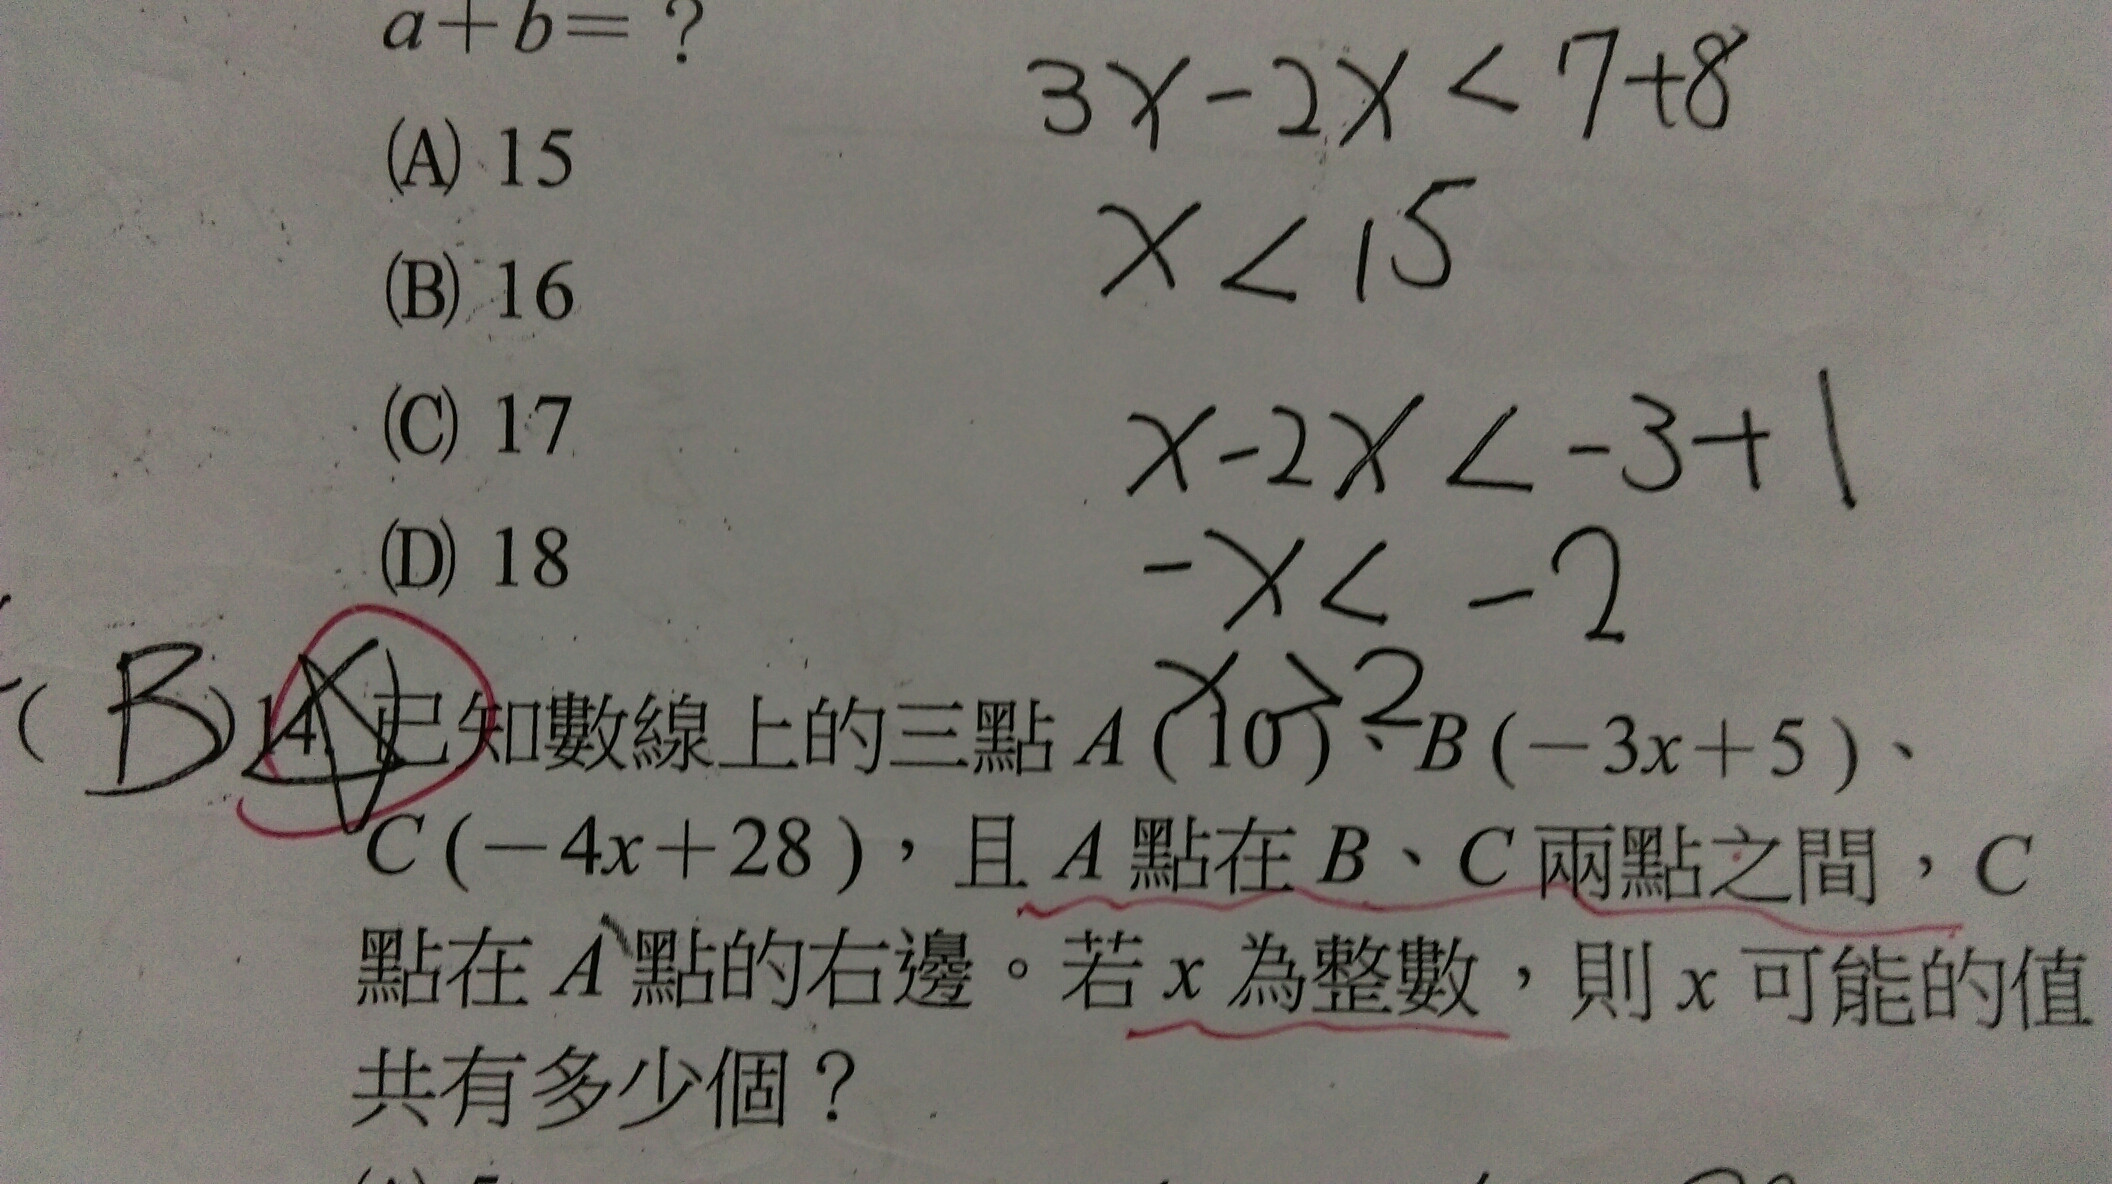 a+b=?
(A) 15
(B) 16
(C) 17
(D) 18
3x-2x<7+8
x<15
x-2x<-3+1
-x<-2
x>2
(B)14.已知數線上的三點 A(10)、B(-3x+5)、
C(-4x+28),且 A 點在 B、C 兩點之間,C
點在 A 點的右邊。若 x 為整數,則 x 可能的值
共有多少個?